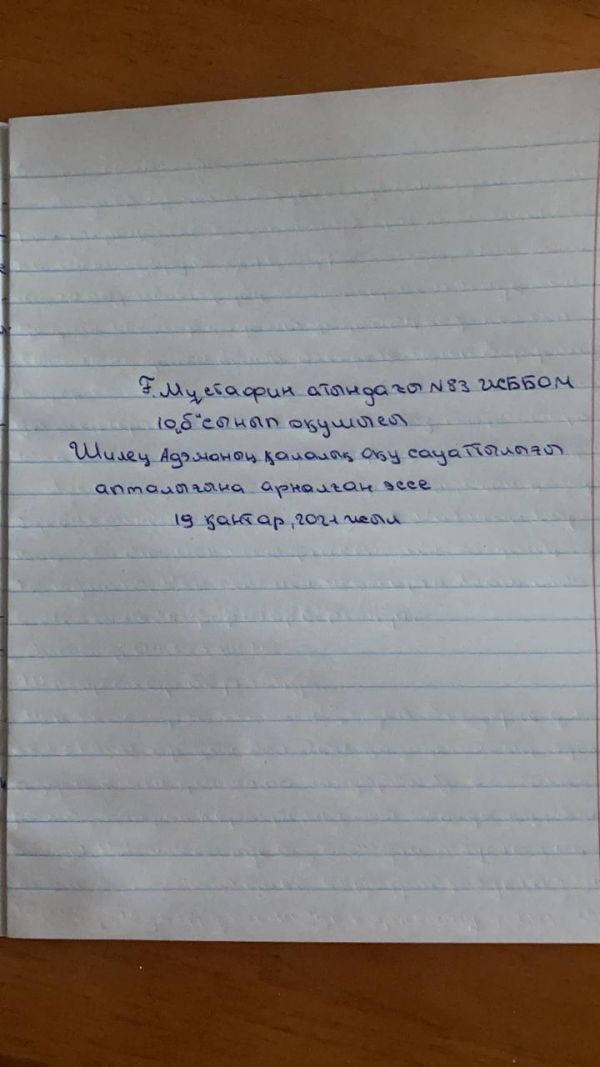 Ғ. Мұстафин атындағы №83 ЖББОМ
10 „б" сынып оқушысы
Шилең Адэманың қалалық оқу сауаттылығы
апталығына арналған эссе
19 қаңтар, 2021 жыл